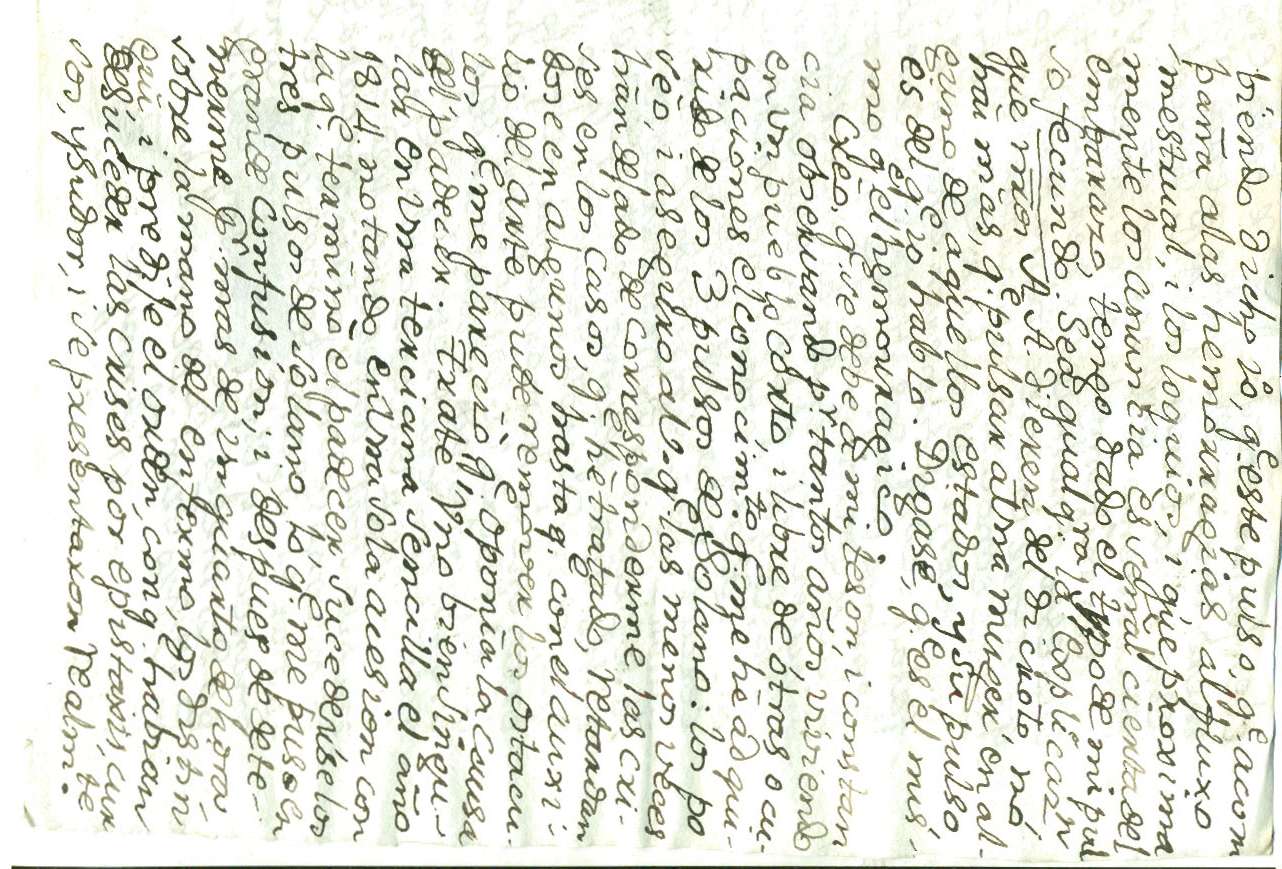 biendo dicho io, q̃ esse pulso, q̃ acom
paña alas hemorragias al fluxo
mestrual, i los loquios, i que proxima
mente los anuncia es señal cierta del
embarazo, tengo dado el tipo de mi pul
so fecundo. Sea qualq.ra la esplicaz.n
que mis A A dieren del dicroto, no
hai mas, q̃ pulsar a una muger en al-
guno de aquellos estados, y su pulso
es del q̃ io hablo. Digase, q̃ es el mis,
mo q̃ el hemorragico
Creo, q. se debe a mi teson i constan
cia observando p.r tantos años, viviendo
en un pueblo corto, i libre de otras ocu-
paciones el conocim.to q. me he adqui-
rido de los 3 pulsos de Solano. io po
veo, i aseguro a q̃ las menos veces
han dejado de corresponderme las cri-
ses en los casos, q. he tratado, retardan
dose en algunos hasta q. con el auxi-
lio del ante pude remover los otacu-
los q̃ me parecio q̃ oponia la causa
del padecer. Traté uno bien singu-
lar en una terciana sencilla el año
1814. notando en una sola acesion con
la q. termino el padecer, sucedersele los
tres pulsos de solano lo q̃ me puso en
grande confusion, i despues de dete-
nerme mas de un quarto de hora
sobre la mano del enfermo,
guí, i predije el orden, con q. habian
de suceder las crises por epistaxis, cur
sos, y sudor, i se presentaron realm.te